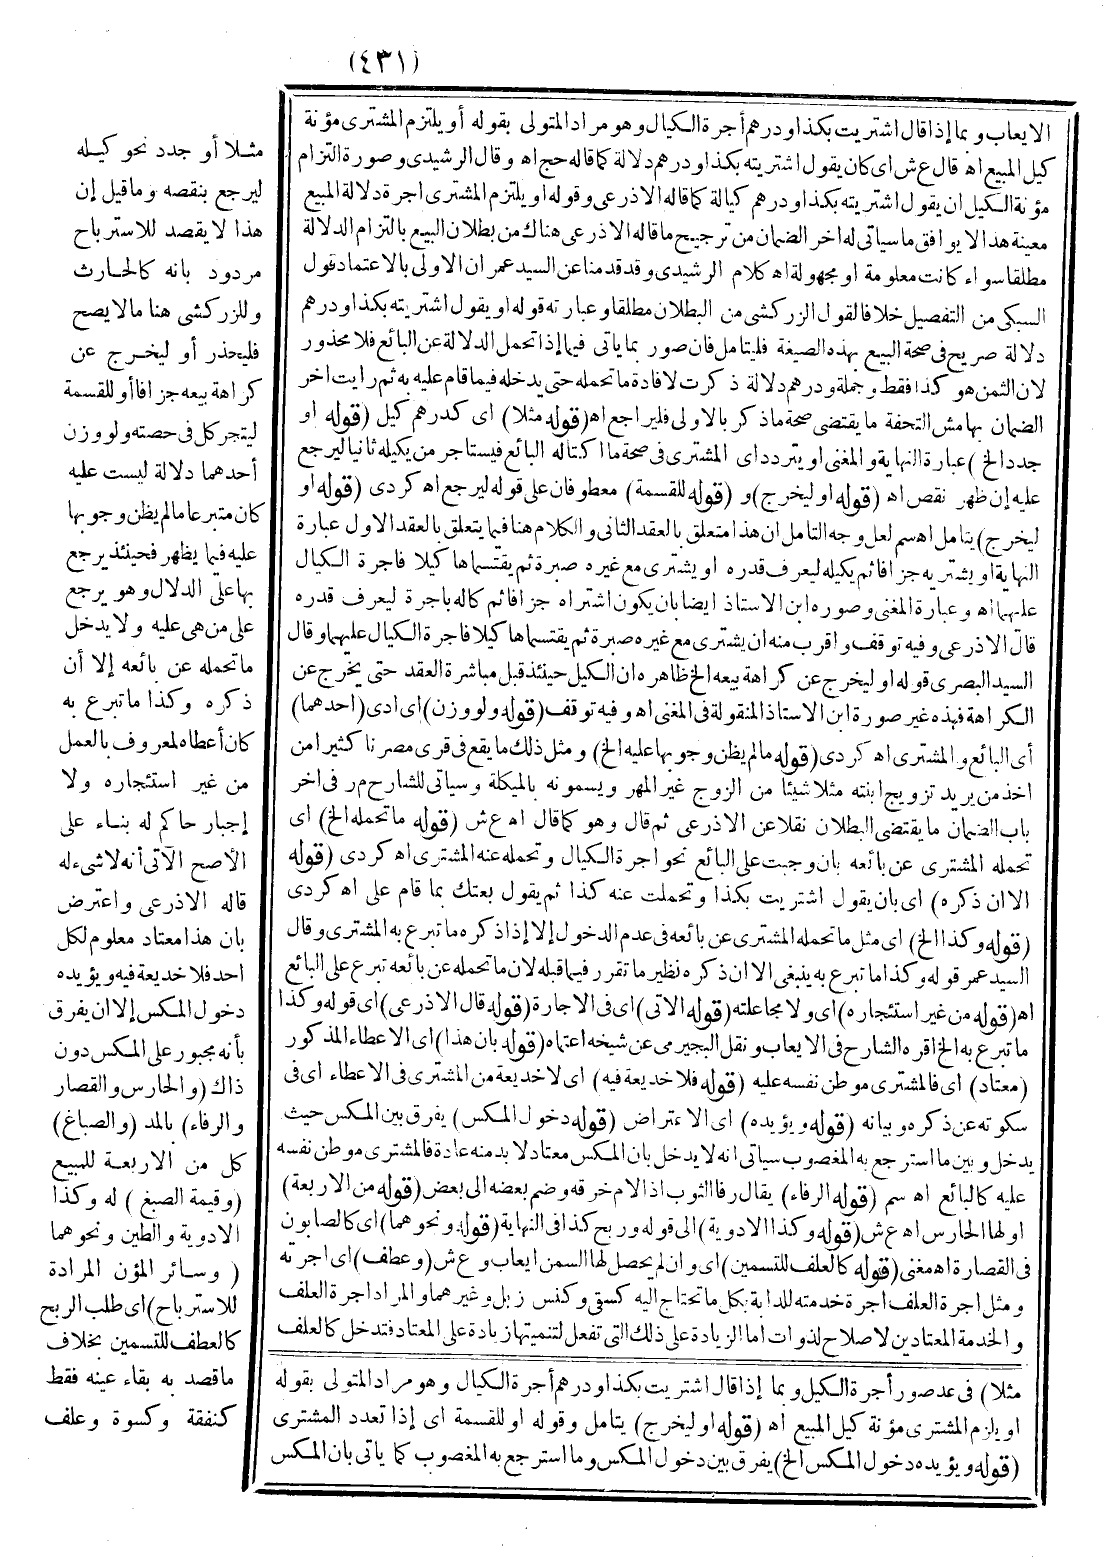 (٤٣١)
الايعاب وبما إذا قال اشتريت بكذا ودرهم أجرة الكيال وهو مراد المتولى بقوله أو يلتزم المشترى مؤنة
كيل المبيع اه قال ع ش اى كان يقول اشتريته بكذا ودرهم دلالة كما قاله حج اه وقال الرشيدى وصورة التزام
مؤنة الكيل ان يقول اشتريته بكذا ودرهم كيالة كما قاله الاذرعى وقوله او يلتزم المشترى اجرة دلالة المبيع
معينة هذا لا يوافق ما سياتى له اخر الضمان من ترجيح ما قاله الاذرعى هناك من بطلان البيع بالتزام الدلالة
مطلقا سواء كانت معلومة او مجهولة اه كلام الرشيدى وقد قدمنا عن السيد عمر ان الاولى بالاعتماد قول
السبكى من التفصيل خلافا لقول الزركشى من البطلان مطلقا وعبارته قوله او يقول اشتريته بكذا ودرهم
دلالة صريح فى صحة البيع بهذه الصيغة فليتامل فان صور بما ياتى فيما إذا تحمل الدلالة عن البائع فلا محذور
لان الثمن هو كذا فقط وجملة ودرهم دلالة ذكرت لافادة ما تحمله حتى يدخله فيما قام عليه به ثم رايت اخر
الضمان بهامش التحفة ما يقتضى صحة ما ذكر بالاولى فليراجع اه (قوله مثلا) اى كدرهم كيل (قوله او
جدد الخ) عبارة النهاية والمغنى او يتردد اى المشترى فى صحة ما اكتاله البائع فيستاجر من يكيله ثانيا ليرجع
عليه إن ظهر نقص اه (قوله او ليخرج) و (قوله للقسمة) معطوفان على قوله ليرجع اه كردى (قوله او
ليخرج) يتامل اه سم لعل وجه التامل ان هذا متعلق بالعقد الثانى والكلام هنا فيما يتعلق بالعقد الاول عبارة
النهاية او يشتريه جزافا ثم يكيله ليعرف قدره او يشترى مع غيره صبرة ثم يقتسماها كيلا فاجرة الكيال
عليهما اه وعبارة المغنى وصوره ابن الاستاذ ايضا بان يكون اشتراه جزافا ثم كاله باجرة ليعرف قدره
قال الاذرعى وفيه توقف واقرب منه ان يشترى مع غيره صبرة ثم يقتسماها كيلا فاجرة الكيال عليهما وقال
السيد البصرى قوله او ليخرج عن كراهة بيعه الخ ظاهره ان الكيل حينئذ قبل مباشرة العقد حتى يخرج عن
الكراهة فهذه غير صورة ابن الاستاذ المنقولة فى المغنى اه وفيه توقف (قوله ولو وزن) اى ادى (احدهما)
أى البائع والمشترى اه كردى (قوله ما لم يظن وجوبها عليه الخ) ومثل ذلك ما يقع فى قرى مصرنا كثيرا من
اخذ من يريد تزويج ابنته مثلا شيئا من الزوج غير المهر ويسمونه بالميكلة وسياتى للشارح م ر فى اخر
باب الضمان ما يقتضى البطلان نقلا عن الاذرعى ثم قال وهو كما قال اه ع ش (قوله ما تحمله الخ) اى
تحمله المشترى عن بائعه بان وجبت على البائع نحو اجرة الكيال وتحمله عنه المشترى اه كردى (قوله
الا ان ذكره) اى بان يقول اشتريت بكذا وتحملت عنه كذا ثم يقول بعتك بما قام على اه كردى
(قوله وكذا الخ) اى مثل ما تحمله المشترى عن بائعه فى عدم الدخول إلا إذا ذكره ما تبرع به المشترى وقال
السيد عمر قوله وكذا ما تبرع به ينبغى الا ان ذكره نظير ما تقرر فيما قبله لان ما تحمله عن بائعه تبرع على البائع
اه (قوله من غير استئجاره) اى ولا مجاعلته (قوله الاتى) اى فى الاجارة (قوله قال الاذرعى) اى قوله وكذا
ما تبرع به الخ اقره الشارح فى الايعاب ونقل البجيرمى عن شيخه اعتماده (قوله بان هذا) اى الاعطاء المذكور
(معتاد) اى فالمشترى موطن نفسه عليه (قوله فلا خديعة فيه) اى لا خديعة من المشترى فى الاعطاء اى فى
سكوته عن ذكره وبيانه (قوله ويؤيده) اى الاعتراض (قوله دخول المكس) يفرق بين المكس حيث
يدخل وبين ما استرجع به المغصوب سياتى انه لا يدخل بان المكس معتاد لا بد منه عادة فالمشترى موطن نفسه
عليه كالبائع اه سم (قوله الرفاء) يقال رفا الثوب اذا لام خرقه وضم بعضه الى بعض (قوله من الاربعة)
اولها الحارس اه ع ش (قوله وكذا الادوية) الى قوله وربح كذا فى النهاية (قوله ونحوهما) اى كالصابون
فى القصارة اه مغنى (قوله كالعلف للتسمين) اى وان لم يحصل لها السمن ايعاب وع ش (وعطف) اى اجرته
ومثل اجرة العلف اجرة خدمته للدابة بكل ما تحتاج اليه كسقى وكنس زبل وغيرهما والمراد اجرة العلف
والخدمة المعتادين لاصلاح لذوات اما الزيادة على ذلك التى تفعل لتنميتها زيادة على المعتاد فتدخل كالعلف
مثلا) فى عد صور أجرة الكيل وبما إذا قال اشتريت بكذا ودرهم أجرة الكيال وهو مراد المتولى بقوله
او يلزم المشترى مؤنة كيل المبيع اه (قوله او ليخرج) يتامل وقوله او للقسمة اى إذا تعدد المشترى
(قوله ويؤيده دخول المكس الخ) يفرق بين دخول المكس وما استرجع به المغصوب كما ياتى بان المكس
مثلا أو جدد نحو كيله
ليرجع بنقصه وما قيل إن
هذا لا يقصد للاسترباح
مردود بانه كالحارث
وللزركشى هنا ما لا يصح
فليحذر أو ليخرج عن
كراهة بيعه جزافا أو للقسمة
ليتجر كل فى حصته ولو وزن
أحدهما دلالة ليست عليه
كان متبرعا ما لم يظن وجوبها
عليه فيما يظهر فحينئذ يرجع
بها على الدلال وهو يرجع
على من هى عليه ولا يدخل
ما تحمله عن بائعه إلا أن
ذكره وكذا ما تبرع به
كان أعطاه لمعروف بالعمل
من غير استئجاره ولا
إجبار حاكم له بناء على
الأصح الآتى أنه لا شىء له
قاله الاذرعى واعترض
بان هذا معتاد معلوم لكل
احد فلا خديعة فيه ويؤيده
دخول المكس إلا ان يفرق
بأنه مجبور على المكس دون
ذاك (والحارس والقصار
والرفاء) بالمد (والصباغ)
كل من الاربعة للبيع
(وقيمة الصبغ) له وكذا
الادوية والطين ونحوهما
(وسائر المؤن المرادة
للاسترباح) اى طلب الربح
كالعطف للتسمين بخلاف
ما قصد به بقاء عينه فقط
كنفقة وكسوة وعلف